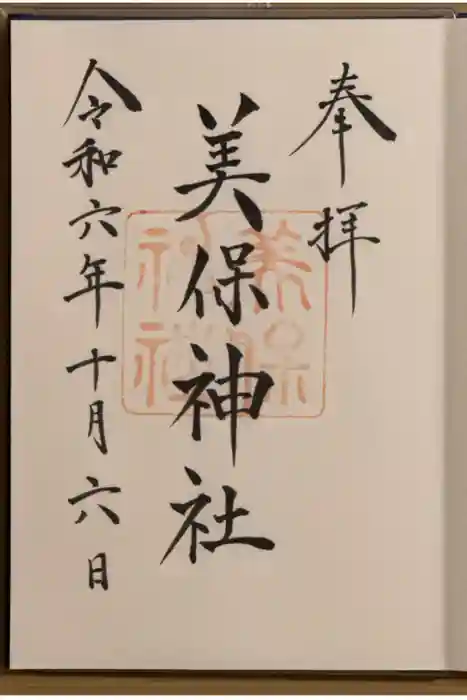 奉拝
美保神社
美保神社
令和六年十月六日